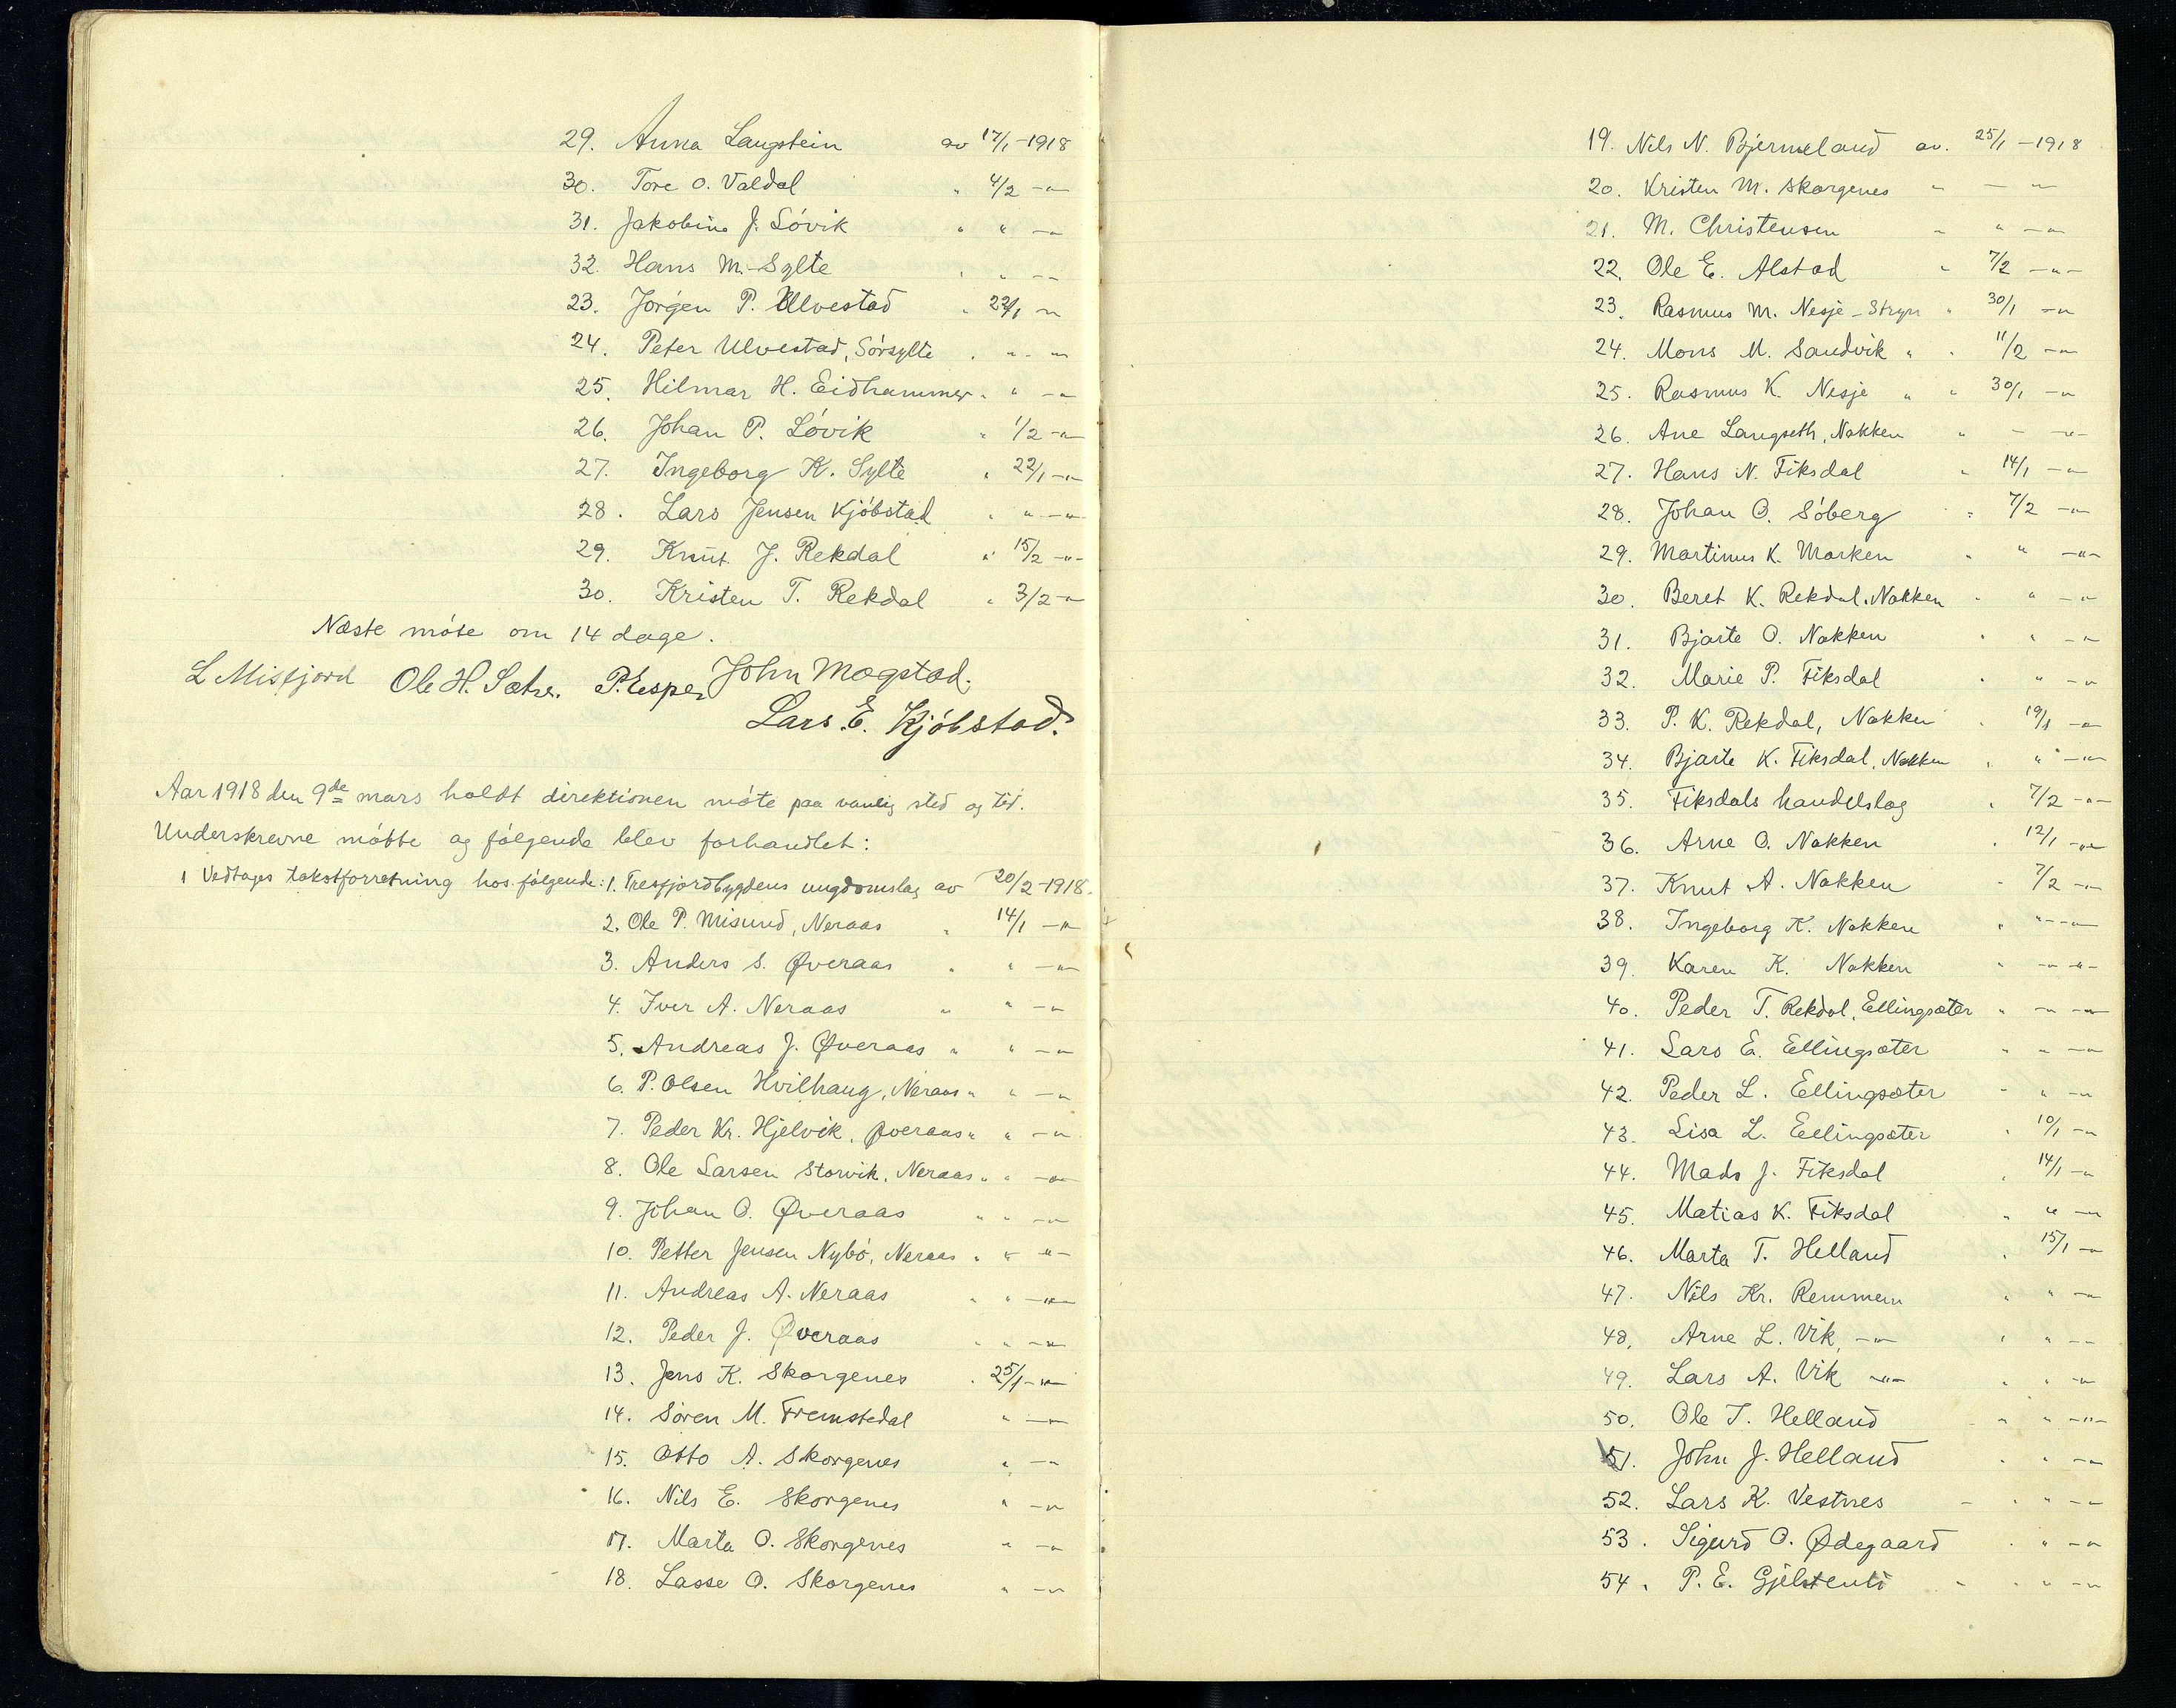 29. Anna Langstein av 17/1 -1918
30. Tore O. Valdal " 4/2 -"-
31. Jakobine J. Lóvik " " -"-
32. Hans M. Sylte " " -"-
23. Jórgen P. Ulvestad " 22/1 -"-
24. Peter Ulvestad, Sórsylte " " -"-
25. Hilmar H. Eidhammer " " -"-
26. Johan P. Lóvik " 1/2 -"-
27. Ingeborg K. Sylte " 22/1 -"-
28. Lars Jensen Kjóbstad " " -"-
29. Knut J. Rekdal " 15/2 -"-
30. Kristen T. Rekdal " 3/2 -"-
Næste móte om 14 dage.
L Misfjord Ole H. Sætre. P. Esper John Magstad.
Lars. E. Kjóbstad.
Aar 1918 den 9de mars holdt direktionen móte paa vanlig sted og tid.
Underskrevne mótte og fólgende blev forhandlet:
1 Vedtages takstforretning hos fólgende: 1. Tresfjordbygdens ungdomslag av 20/2 -1918.
2. Ole P. Misund, Neraas " 14/1 -"-
3. Anders S. Øveraas " " -"-
4. Iver A. Neraas " " -"-
5. Andreas J. Øveraas " " -"-
6. P. Olsen Hvilhaug, Neraas " " -"-
7. Peder Kr. Hjelvik, Øveraas " " -"-
8. Ole Larsen Storvik, Neraas " " -"-
9. Johan O. Øveraas " " -"-
10. Petter Jensen Nybó, Neraas " " -"-
11. Andreas A. Neraas " " -"-
12. Peder J. Øveraas " " -"-
13. Jens K. Skorgenes " 25/1 -"-
14. Sóren M. Fremstedal " -"-
15. Otto A. Skorgenes " -"-
16. Nils E. Skorgenes " -"-
17. Marta O. Skorgenes " -"-
18. Lasse O. Skorgenes " -"-
19. Nils N. Bjermeland av. 25/1 -1918
20. Kristen M. Skorgenes " - -"-
21. M. Christensen " " -"-
22. Ole E. Alstad " 7/2 -"-
23. Rasmus M. Nesje - Stryn " 30/1 -"-
24. Mons M. Sandvik " " 11/2 -"-
25. Rasmus K. Nesje " " 30/1 -"-
26. Ane Langseth, Nakken " - -"-
27. Hans N. Fiksdal " 14/1 -"-
28. Johan O. Sóberg " 7/2 -"-
29. Martinus K. Marken " " -"-
30. Beret K. Rekdal, Nakken " " -"-
31. Bjarte O. Nakken " " -"-
32. Marie P. Fiksdal " " -"-
33. P. K. Rekdal, Nakken " 19/1 -"-
34. Bjarte K. Fiksdal, Nakken " " -"-
35. Fiksdals handelslag " 7/2 -"-
36. Arne O. Nakken " 12/1 -"-
37. Knut A. Nakken " 7/2 -"-
38. Ingeborg K. Nakken " " -"-
39. Karen K. Nakken " -"- -"-
40. Peder T. Rekdal, Ellingsæter " -"- -"-
41. Lars E. Ellingsæter " " -"-
42. Peder L. Ellingsæter " " -"-
43. Lisa L. Ellingsæter " 10/1 -"-
44. Mads J. Fiksdal " 14/1 -"-
45. Matias K. Fiksdal " " -"-
46. Marta T. Helland " 15/1 -"-
47. Nils Kr. Remmem " " -"-
48. Arne L. Vik, -"- " " -"-
49. Lars A. Vik -"- " " -"-
50. Ole T. Helland " " -"-
51. John J. Helland " " -"-
52. Lars K. Vestnes " " " -"-
53. Sigurd O. Ødegaard " " -"-
54. P. E. Gjelstenli " " " -"-